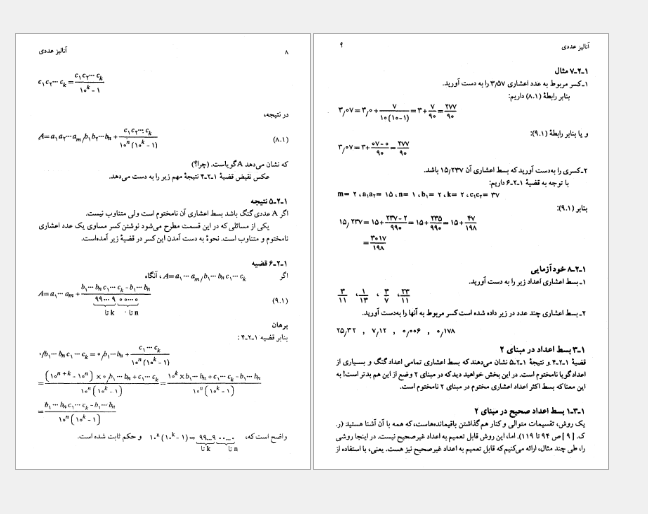 ۸
آنالیز عددی
c۱c۲⋯ck = c۱c۲⋯ck / ۱۰^k − ۱
در نتیجه،
A = a۱a۲⋯am / b۱b۲⋯bn + c۱c۲⋯ck / ۱۰^n(۱۰^k − ۱) (۸.۱)
که نشان می‌دهد A گویاست. (چرا؟)
عکس نقیض قضیهٔ ۱-۲-۴ نتیجهٔ مهم زیر را به دست می‌دهد.
۱-۲-۵ نتیجه
اگر A عددی گنگ باشد بسط اعشاری آن نامختوم است ولی متناوب نیست.
یکی از مسائلی که در این قسمت مطرح می‌شود نوشتن کسر مساوی یک عدد اعشاری
نامختوم و متناوب است. نحوهٔ به دست آمدن این کسر در قضیهٔ زیر آمده‌است.
۱-۲-۶ قضیه
اگر A = a۱⋯am / b۱⋯bn c۱⋯ck ، آنگاه
A = a۱⋯am + b۱⋯bn c۱⋯ck − b۱⋯bn / ۹۹⋯۹ ۰۰⋯۰ (۹.۱)
k تا n تا
برهان
بنابر قضیهٔ ۱-۲-۴:
۰/b۱⋯bn c۱⋯ck = ۰/b۱⋯bn + c۱⋯ck / ۱۰^n(۱۰^k − ۱)
= (۱۰^(n+k) − ۱۰^n) × ۰/b۱⋯bn + c۱⋯ck / ۱۰^n(۱۰^k − ۱) = ۱۰^k × b۱⋯bn + c۱⋯ck − b۱⋯bn / ۱۰^n(۱۰^k − ۱)
= b۱⋯bn c۱⋯ck − b۱⋯bn / ۱۰^n(۱۰^k − ۱)
واضح است که، ۱۰^n(۱۰^k − ۱) = ۹۹⋯۹ ۰۰⋯۰ و حکم ثابت شده است.
k تا n تا
آنالیز عددی
۹
۱-۲-۷ مثال
۱ـ کسر مربوط به عدد اعشاری ۳/۰۷ را به دست آورید.
بنابر رابطهٔ (۸.۱) داریم:
۳/۰۷ = ۳/۰ + ۷ / ۱۰(۱۰−۱) = ۳ + ۷/۹۰ = ۲۷۷/۹۰
و یا بنابر رابطهٔ (۹.۱):
۳/۰۷ = ۳ + ۰۷−۰ / ۹۰ = ۲۷۷/۹۰
۲ـ کسری را به دست آورید که بسط اعشاری آن ۱۵/۲۳۷ باشد.
با توجه به قضیهٔ ۱-۲-۶ داریم:
m = ۲ ، a۱a۲ = ۱۵ ، n = ۱ ، b۱ = ۲ ، k = ۲ ، c۱c۲ = ۳۷
بنابر (۹.۱):
۱۵/۲۳۷ = ۱۵ + ۲۳۷−۲ / ۹۹۰ = ۱۵ + ۲۳۵/۹۹۰ = ۱۵ + ۴۷/۱۹۸
= ۳۰۱۷/۱۹۸
۱-۲-۸ خود آزمایی
۱ـ بسط اعشاری اعداد زیر را به دست آورید.
۳/۱۱ ، ۱/۱۳ ، ۳/۷ ، ۲۳/۱۱
۲ـ بسط اعشاری چند عدد در زیر داده شده است کسر مربوط به آنها را به‌دست آورید.
۲۵/۳۲ ، ۷/۱۲ ، ۰/۰۰۶ ، ۰/۱۷۸
۱-۳ بسط اعداد در مبنای ۲
قضیهٔ ۱-۲-۲ و نتیجهٔ ۱-۲-۵ نشان می‌دهند که بسط اعشاری تمامی اعداد گنگ و بسیاری از
اعداد گویا نامختوم است. در این بخش خواهید دید که در مبنای ۲ وضع از این هم بدتر است! به
این معنا که بسط اکثر اعداد اعشاری مختوم در مبنای ۲ نامختوم است.
۱-۳-۱ بسط اعداد صحیح در مبنای ۲
یک روش، تقسیمات متوالی و کنار هم گذاشتن باقیمانده‌هاست، که همه با آن آشنا هستید (ر.
ک. [۹] ص ۹۴ تا ۱۱۹). اما، این روش قابل تعمیم به اعداد غیرصحیح نیست. در اینجا روشی
را، طی چند مثال، ارائه می‌کنیم که قابل تعمیم به اعداد غیرصحیح نیز هست. یعنی، با استفاده از